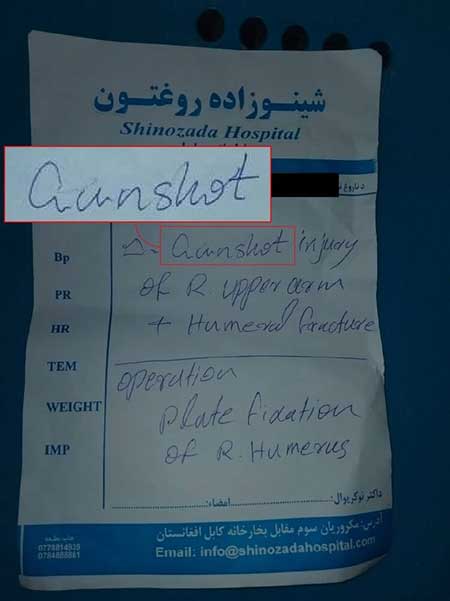 شینوزاده روغتون
Shinozada Hospital
Gunshot
د ناروغ
Bp
PR
HR
TEM
WEIGHT
IMP
Δ- Gunshot injury
of R. upper arm
+ Humeral fracture
operation
plate fixation
of R. Humerus
داکتر نوکریوال: امضاء:
آدرس: مکروریان سوم مقابل بخارخانه کابل افغانستان
Email: info@shinozadahospital.com
0778814939